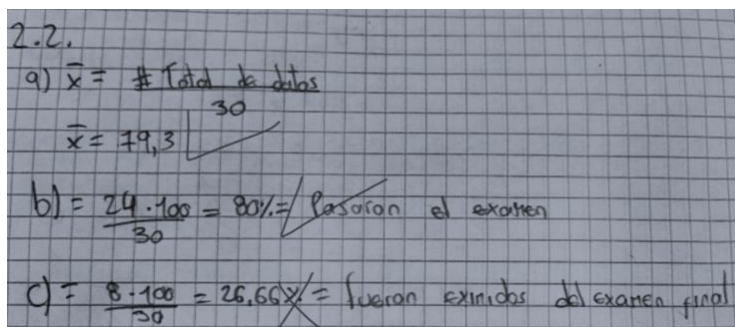 2.2.
a) x̄ = # Total de datos
30
x̄ = 79,3
b) = 24 · 100 = 80% = Pasaron el examen
30
c) = 8 · 100 = 26,66% = fueron eximidos del examen final
30